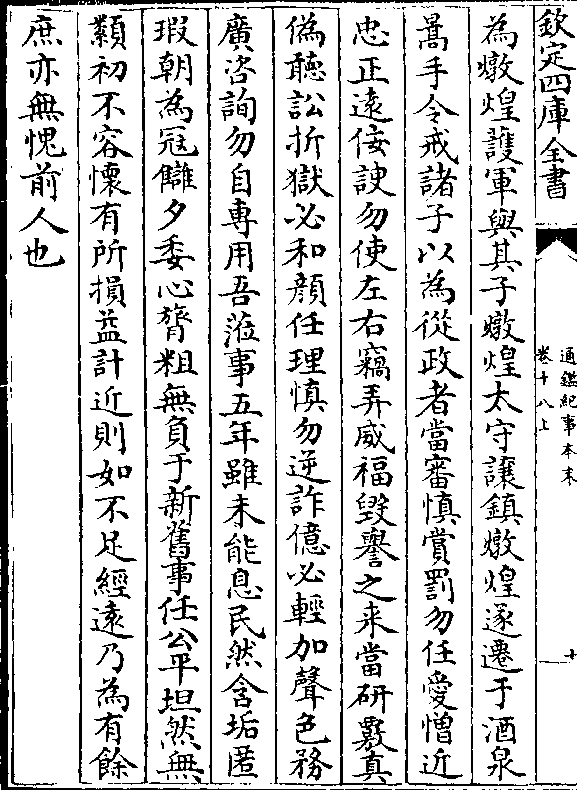 欽定四庫全書
通鑑紀事本末
卷十八上
十
為燉煌護軍與其子燉煌太守譲鎮燉煌遂遷于酒泉
暠手令戒諸子以為從政者當審慎賞罰勿任愛憎近
忠正逺佞諛勿使左右竊弄威福毀譽之来當研覈真
偽聽訟折獄必和顔任理慎勿逆詐億必輕加聲色務
廣咨詢勿自専用吾莅事五年雖未能息民然含垢匿
瑕朝為冦讎夕委心膂粗無負于新舊事任公平坦然無
纇初不容懐有所損益計近則如不足經逺乃為有餘
庶亦無愧前人也